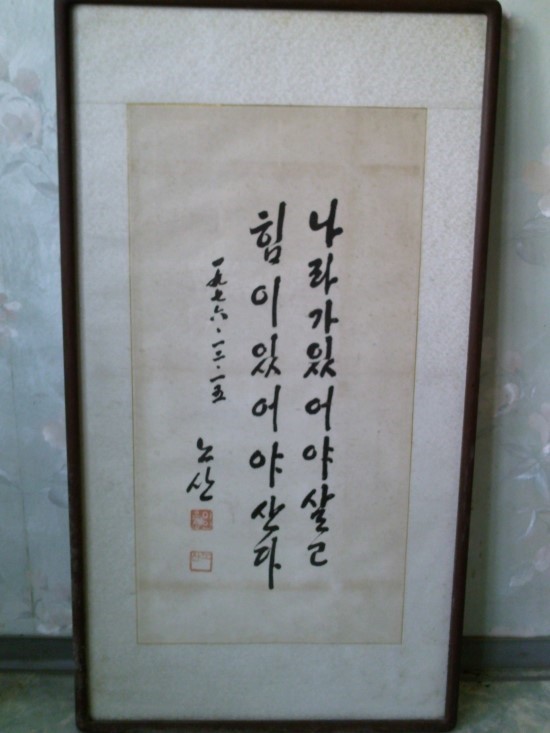 나라가있어야살고
힘이있어야산다
一九七六·一二·一五
노산